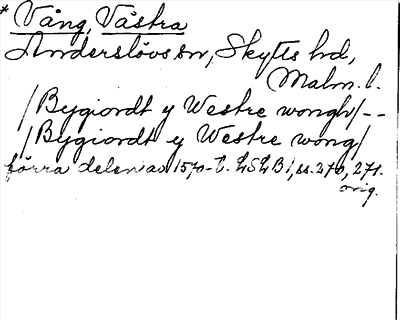 * Vång, Västra
Anderslövs sn, Skytts hd,
Malm. l.
/Bygiordt y Westre wongh/--
/Bygiordt y Westre wong/
förra delen av 1570-t. LSLB1, ss. 270, 271.
orig.